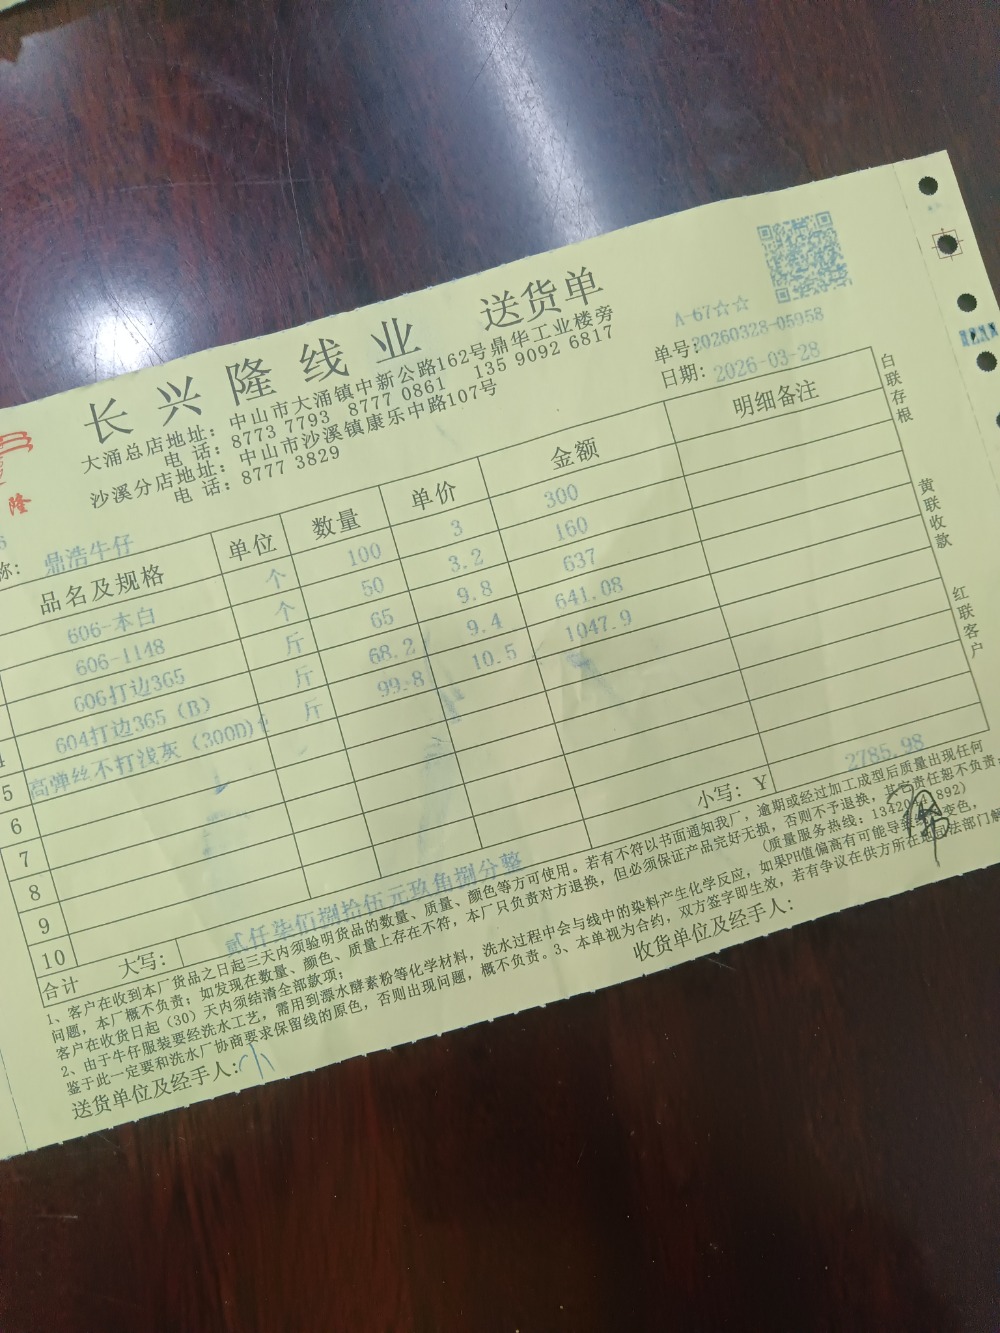 长兴隆线业 送货单
A-67☆☆
大涌总店地址：中山市大涌镇中新公路162号鼎华工业楼旁
电 话：8773 7793 8777 0861 135 9092 6817
沙溪分店地址：中山市沙溪镇康乐中路107号
电 话：8777 3829
单号：20260328-05958
日期：2026-03-28
隆
称：鼎浩牛仔
品名及规格 单位 数量 单价 金额 明细备注
606-本白 个 100 3 300
606-1148 个 50 3.2 160
606打边365 斤 65 9.8 637
4 604打边365（B） 斤 68.2 9.4 641.08
5 高弹丝不打浅灰（300D） 斤 99.8 10.5 1047.9
6
7
8
9
10
合计 大写： 贰仟柒佰捌拾伍元玖角捌分整 小写：Y 2785.98
1、客户在收到本厂货品之日起三天内须验明货品的数量、质量、颜色等方可使用。若有不符以书面通知我厂，逾期或经过加工成型后质量出现任何
问题，本厂概不负责；如发现在数量、颜色、质量上存在不符，本厂只负责对方退换，但必须保证产品完好无损，否则不予退换，其它责任恕不负责；
客户在收货日起（30）天内须结清全部款项；
（质量服务热线：13420 892）
2、由于牛仔服装要经洗水工艺，需用到漂水酵素粉等化学材料，洗水过程中会与线中的染料产生化学反应，如果PH值偏高有可能导 变色，
鉴于此一定要和洗水厂协商要求保留线的原色，否则出现问题，概不负责。3、本单视为合约，双方签字即生效，若有争议在供方所在地 法部门解
送货单位及经手人：小
收货单位及经手人：
白联存根
黄联收款
红联客户